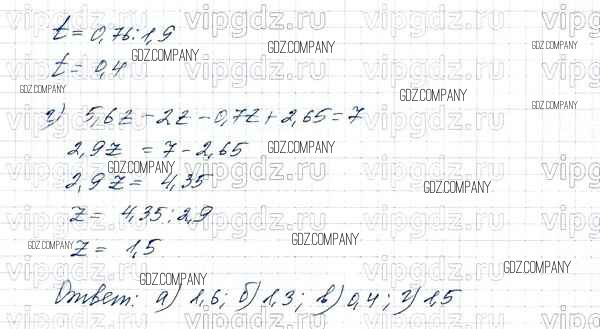 t = 0,76 : 1,9
GDZ.COMPANY
GDZ.COMPANY
t = 0,4
GDZ.COMPANY
vipgdz.ru vipgdz.ru vipgdz.ru
GDZ.COMPANY
г) 5,6z - 2z - 0,7z + 2,65 = 7
2,9z = 7 - 2,65
GDZ.COMPANY
GDZ.COMPANY
2,9z = 4,35
GDZ.COMPANY
z = 4,35 : 2,9
vipgdz.ru vipgdz.ru vipgdz.ru
GDZ.COMPANY
GDZ.COMPANY
z = 1,5
vipgdz.ru vipgdz.ru vipgdz.ru
GDZ.COMPANY
GDZ.COMPANY
Ответ: а) 1,6; б) 1,3; в) 0,4; г) 1,5